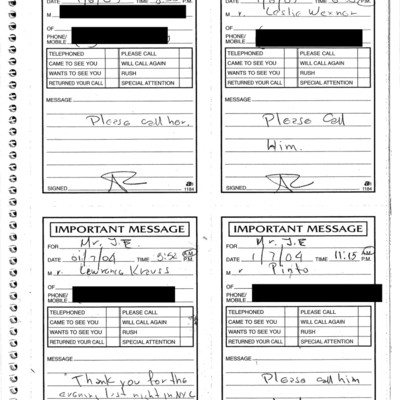 DATE TIME P.M.
M r Leslie Wexner
OF
PHONE/
MOBILE
TELEPHONED PLEASE CALL
CAME TO SEE YOU WILL CALL AGAIN
WANTS TO SEE YOU RUSH
RETURNED YOUR CALL SPECIAL ATTENTION
MESSAGE
Please call her.
SIGNED 1184
OF
PHONE/
MOBILE
TELEPHONED PLEASE CALL
CAME TO SEE YOU WILL CALL AGAIN
WANTS TO SEE YOU RUSH
RETURNED YOUR CALL SPECIAL ATTENTION
MESSAGE
Please Call
Him.
SIGNED 1184
IMPORTANT MESSAGE
FOR Mr. J.E
DATE 01/7/04 TIME 5:52 P.M.
M r Lawrence Krauss
OF
PHONE/
MOBILE
TELEPHONED PLEASE CALL
CAME TO SEE YOU WILL CALL AGAIN
WANTS TO SEE YOU RUSH
RETURNED YOUR CALL SPECIAL ATTENTION
MESSAGE
"Thank you for the
evening last night in NYC
IMPORTANT MESSAGE
FOR Mr. J.E
DATE 1/7/04 TIME 11:15 A.M. P.M.
M r Pinto
OF
PHONE/
MOBILE
TELEPHONED PLEASE CALL
CAME TO SEE YOU WILL CALL AGAIN
WANTS TO SEE YOU RUSH
RETURNED YOUR CALL SPECIAL ATTENTION
MESSAGE
Please call him